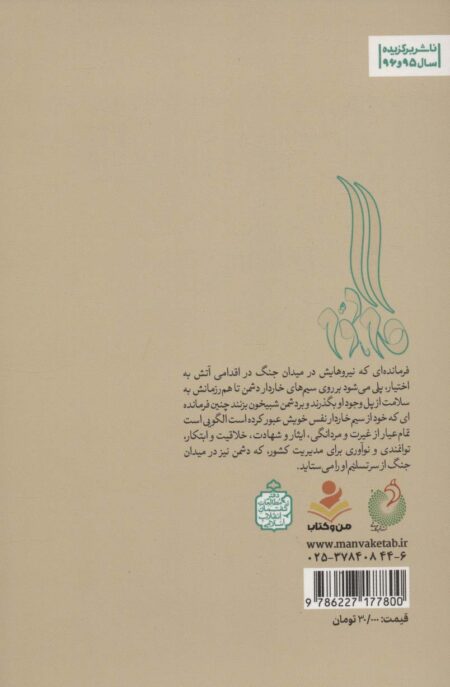 ناشر برگزیده
سال ۹۵ و ۹۶
فرمانده‌ای که نیروهایش در میدان جنگ در اقدامی آتش به
اختیار، پلی می‌شود بر روی سیم‌های خاردار دشمن تا هم‌رزمانش به
سلامت از پل وجود او بگذرند و بر دشمن شبیخون بزنند چنین فرمانده
ای که خود از سیم خاردار نفس خویش عبور کرده است الگویی است
تمام عیار از غیرت و مردانگی، ایثار و شهادت، خلاقیت و ابتکار،
توانمندی و نوآوری برای مدیریت کشور، که دشمن نیز در میدان
جنگ از سر تسلیم او را می‌ستاید.
دفتر
مطالعات
گفتمان
انقلاب
اسلامی
من و کتاب
www.manvaketab.ir
۰۲۵-۳۷۸۴۰۸۴۴-۶
9 786227 177800
قیمت: ۳۰/۰۰۰ تومان